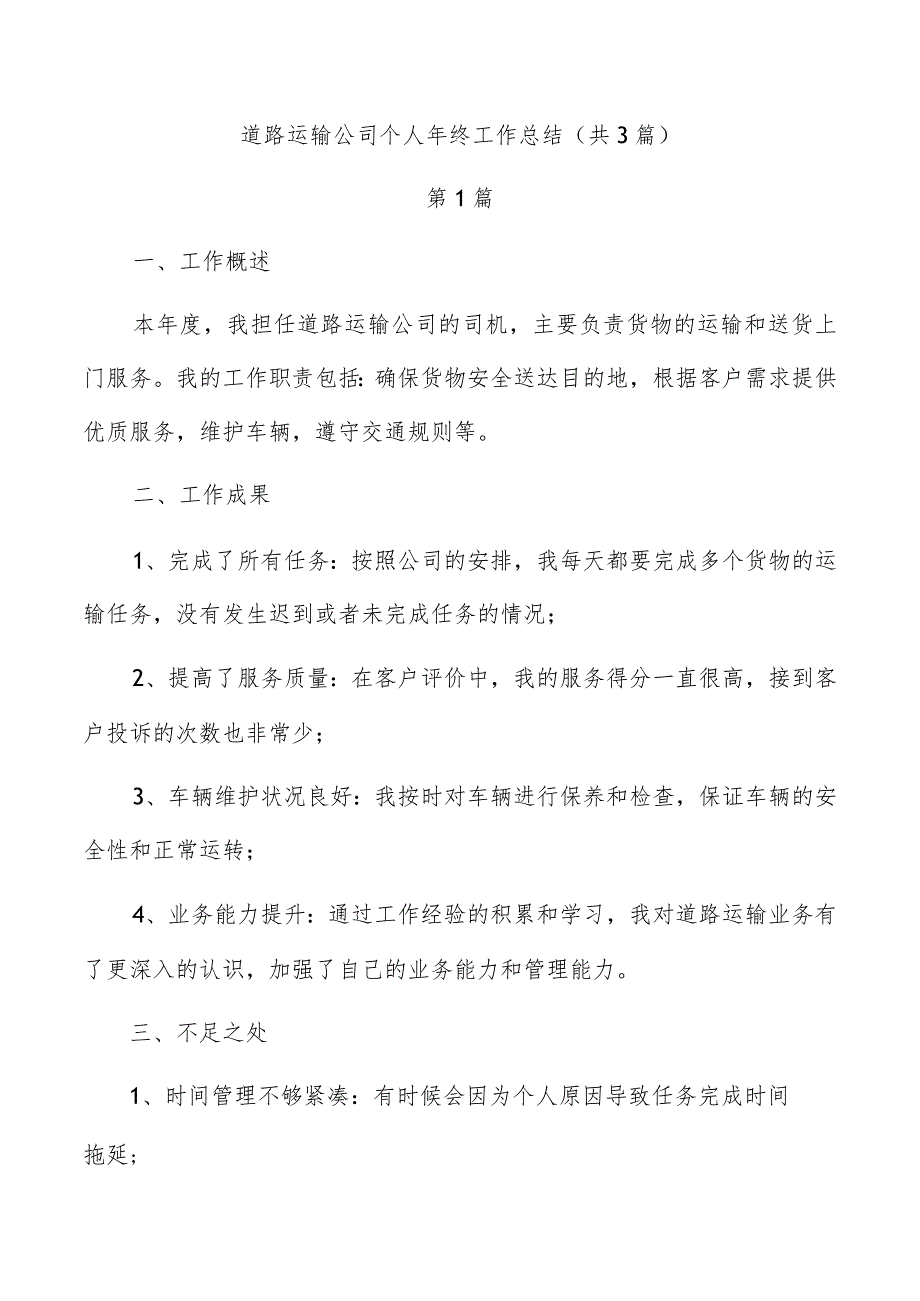 道路运输公司个人年终工作总结（共3篇）
第1篇
一、工作概述
本年度，我担任道路运输公司的司机，主要负责货物的运输和送货上
门服务。我的工作职责包括：确保货物安全送达目的地，根据客户需求提供
优质服务，维护车辆，遵守交通规则等。
二、工作成果
1、完成了所有任务：按照公司的安排，我每天都要完成多个货物的运
输任务，没有发生迟到或者未完成任务的情况；
2、提高了服务质量：在客户评价中，我的服务得分一直很高，接到客
户投诉的次数也非常少；
3、车辆维护状况良好：我按时对车辆进行保养和检查，保证车辆的安
全性和正常运转；
4、业务能力提升：通过工作经验的积累和学习，我对道路运输业务有
了更深入的认识，加强了自己的业务能力和管理能力。
三、不足之处
1、时间管理不够紧凑：有时候会因为个人原因导致任务完成时间
拖延；